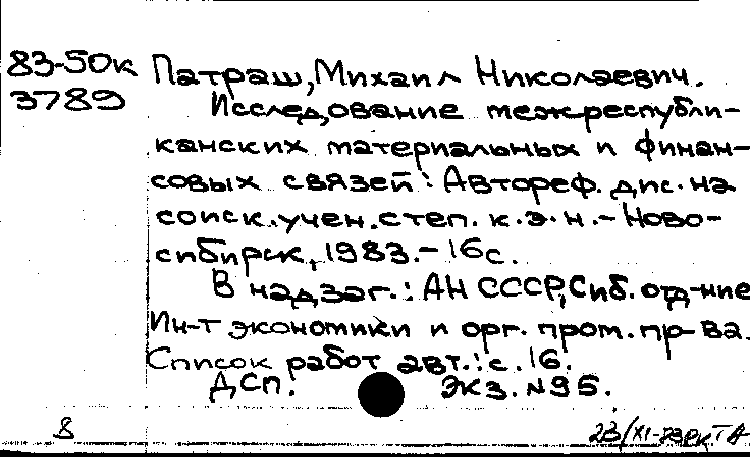 83-50к Патраш, Михаил Николаевич.
3789 Исследование межреспубли-
канских материальных и финан-
совых связей: Автореф. дис. на
соиск. учен. степ. к.э.н. - Ново-
сибирск, 1983. - 16с.
В надзаг.: АН СССР, Сиб. отд-ние
Ин-т экономики и орг. пром. пр-ва.
Список работ авт.: с. 16.
ДСП. Экз. №95.
8